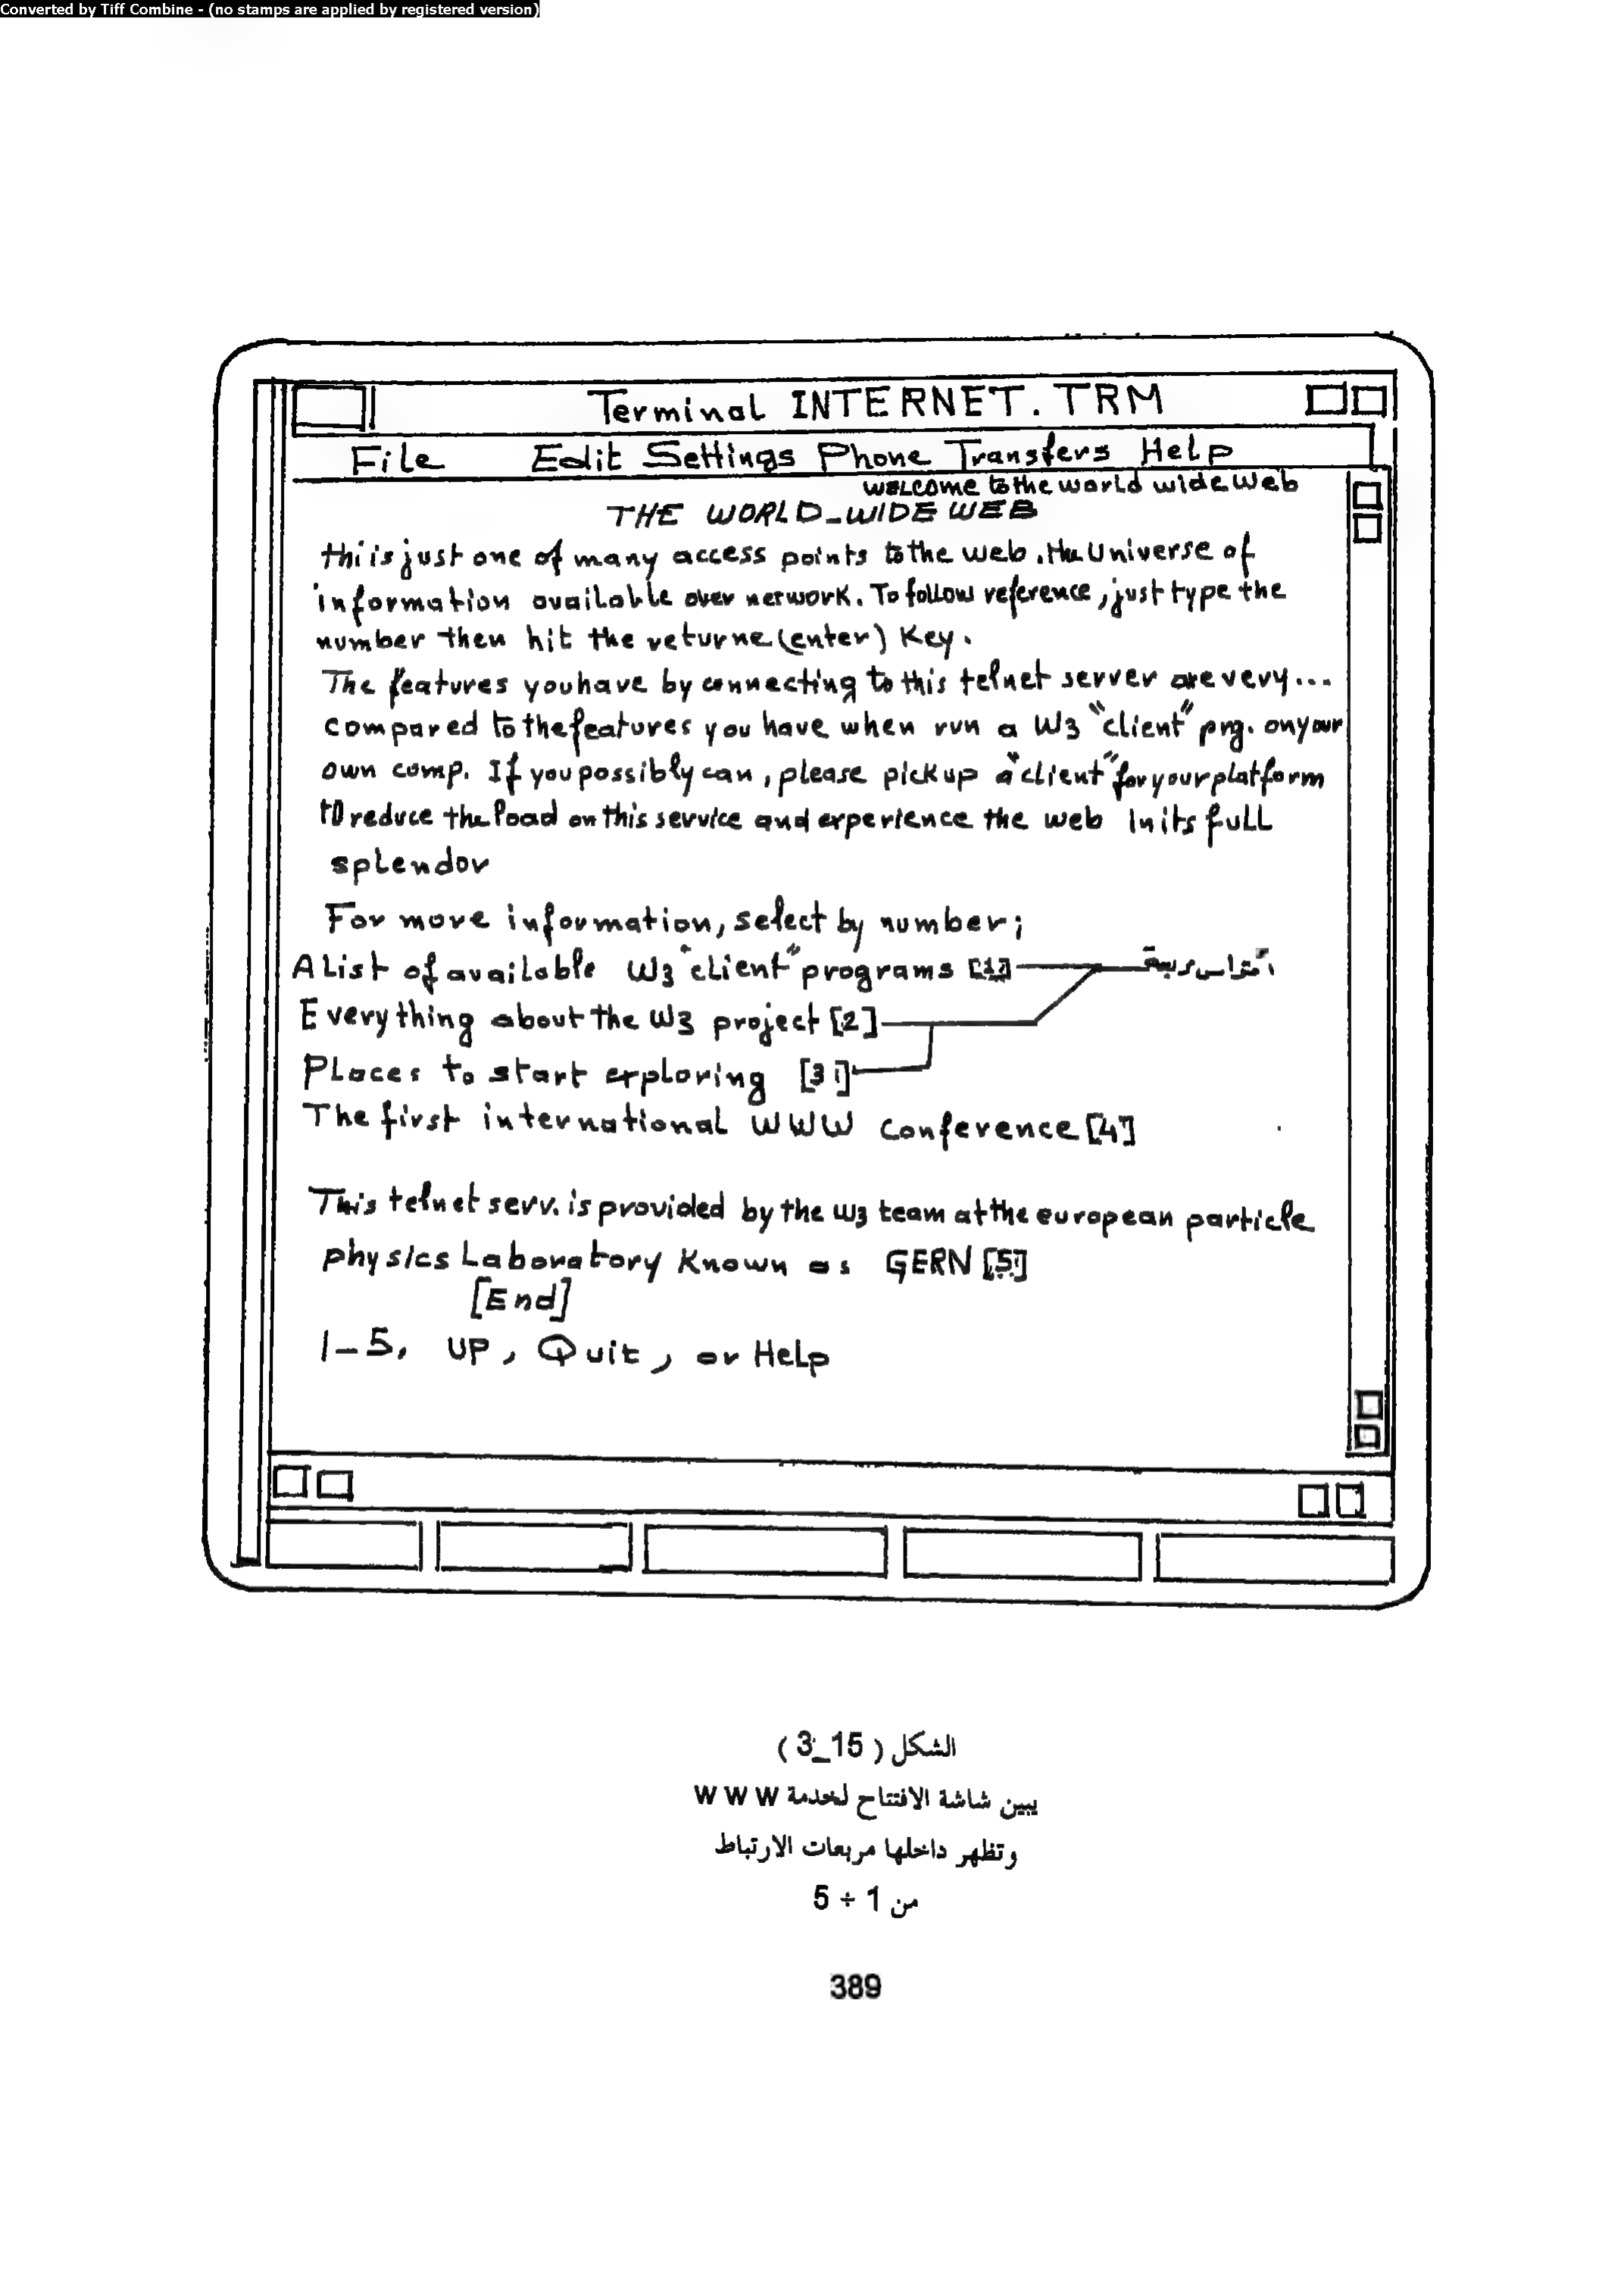 Converted by Tiff Combine - (no stamps are applied by registered version)
Terminal INTERNET. TRM
File Edit Settings Phone Transfers Help
WELCOME to the world wide Web
THE WORLD_WIDE WEB
thi is just one of many access points to the web. the Universe of
information available over network. To follow reference, just type the
number then hit the returne (enter) Key.
The features you have by connecting to this telnet server are very...
compared to the features you have when run a W3 "client" prg. on your
own comp. If you possibly can, please pick up a "client" for your platform
to reduce the load on this service and experience the web in its full
splendor
For more information, select by number;
A List of available W3 "client" programs [1]
Everything about the W3 project [2]
Places to start exploring [3]
The first international WWW conference [4]
This telnet serv. is provided by the W3 team at the european particle
physics Laboratory Known as GERN [5]
[End]
1-5, UP, Quit, or Help
الشكل ( 15_3 )
يبين شاشة الافتتاح لخدمة W W W
وتظهر داخلها مربعات الارتباط
من 1 ÷ 5
389